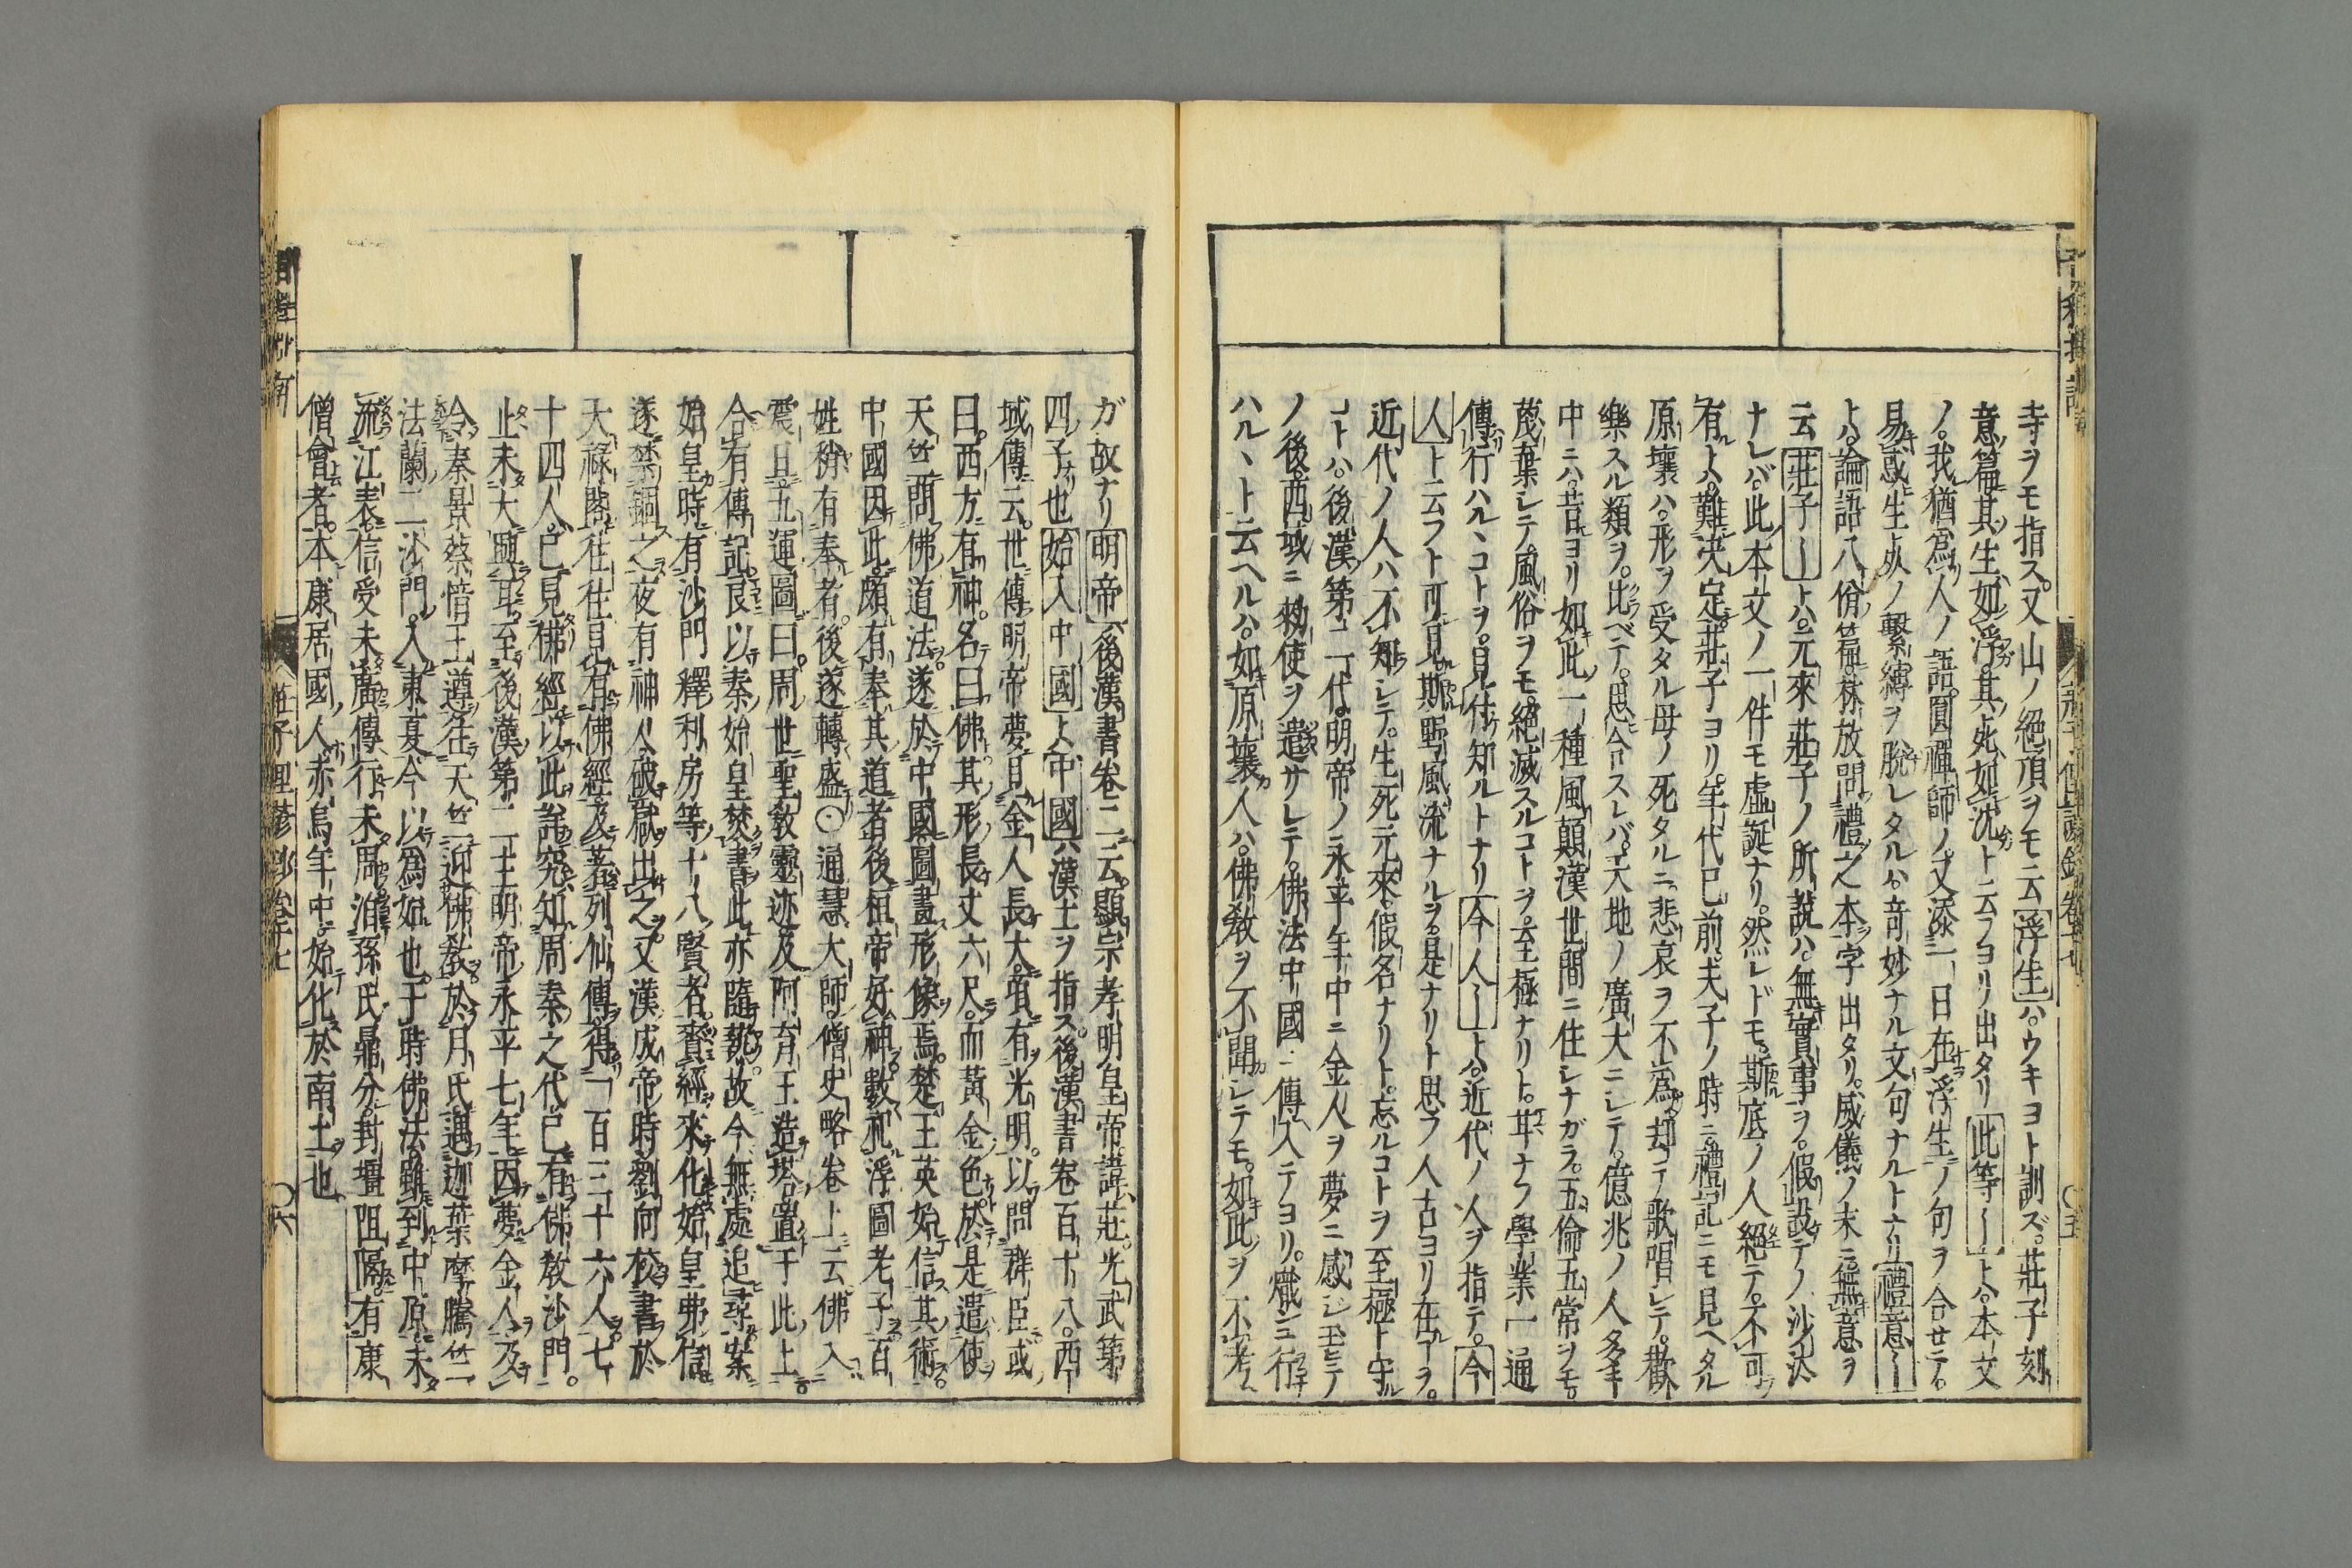 寺ヲモ指ス。又山ノ絶頂ヲモ云浮生ハウキヨト訓ズ。莊子刻
意篇其生如浮。其死如沈ト云フヨリ出タリ此等〡トハ本文
ノ。我猶爲人ノ語。圓禪師ノ。又添一日在浮生ノ句ヲ合セテ。
易惑生死ノ繫縛ヲ脫レタルハ奇妙ナル文句ナルトナリ禮意〡
トハ論語八佾篇。林放問禮之本字出タリ。威儀ノ末ニ無意ヲ
云莊子〡トハ元來莊子ノ所說ハ。無實事ヲ。假設テノ沙汰
ナレバ。此本文ノ一件モ虛誕ナリ。然レドモ。斯底ノ人絕テ。不可
有トハ。難決定。莊子ヨリ。年代已前。夫子ノ時ニ。禮記ニモ見ヘタル
原壤ハ。形ヲ受タル母ノ死タルニ。悲哀ヲ不爲。却テ歌唱レテ。歡
樂スル類ヲ。比ベテ。思合スレバ。天地ノ廣大ニレテ。億兆ノ人多キ
中ニハ。昔ヨリ如此一種風顛漢世間ニ住シナガラ。五倫五常ヲモ。
蔑棄レテ。風俗ヲモ。絕滅スルコトヲ。至極ナリト。耳ナフ學業一通
傳行ハル丶コトヲ。見付知ルトナリ今人〡トハ近代ノ人ヲ指テ。今
人ト云フト可見。斯野風流ナルヲ。是ナリト思フ人古ヨリ在ヿヲ。
近代ノ人ハ不知レテ。生死元來假名ナリト。忘ルコトヲ至極ト守ル
コトハ。後漢第二代明帝ノ永平年中ニ金人ヲ夢タニ感ジ玉ヒテ
ノ後。西域ニ勅使ヲ遣サレテ。佛法中國ニ傳入テヨリ。熾ニ行
ハル丶ト云ヘルハ。如原壤人ハ。佛敎ヲ不聞レテモ。如此ヲ不考
ガ故ナリ明帝後漢書卷二云。顯宗孝明皇帝諱莊。光武第
四子也始入中國ト中國ハ漢土ヲ指ス。後漢書卷百十八。西
域傳云。世傳明帝夢見金人長大。頂有光明。以問群臣。或
曰。西方有神。名曰佛。其形長丈六尺。而黃金色。於是遣使
天竺。問佛道法。遂於中國圖畫形像焉。楚王英始信其術。
中國因此。頗有奉其道者。後桓帝好神。數祀浮圖老子。百
姓稍有奉者。後遂轉盛〇通慧大師僧史略卷上云佛入
震旦五運圖曰。周世聖敎靈迹及阿育王造塔置于此土。
合有傳記。良以秦始皇焚書此亦隨爇。故今無處追尋。案
始皇時有沙門釋利房等十八賢者。賷經來化始皇弗信
遂禁錮之夜有神人破獄出之又漢成帝時劉向校書於
天祿閣往往見有佛經及著列仙傳得一百三十六人。七
十四人。已見佛經以此詳究知周秦之代已有佛敎沙門。
止未大興耳。至後漢第二主明帝永平七年。因夢金人乃
令秦景蔡愔王遵往天竺迎佛敎。於月氏遇迦葉摩騰竺
法蘭二沙門。入東夏今以爲始也。于時佛法雖到中原。未
流江表。信受未廣傳行未周洎孫氏鼎分。封壃阻隔。有康
僧會者。本康居國人。赤烏年中。始化於南土也
莊子俚諺鈔卷十七
〇六
〇五